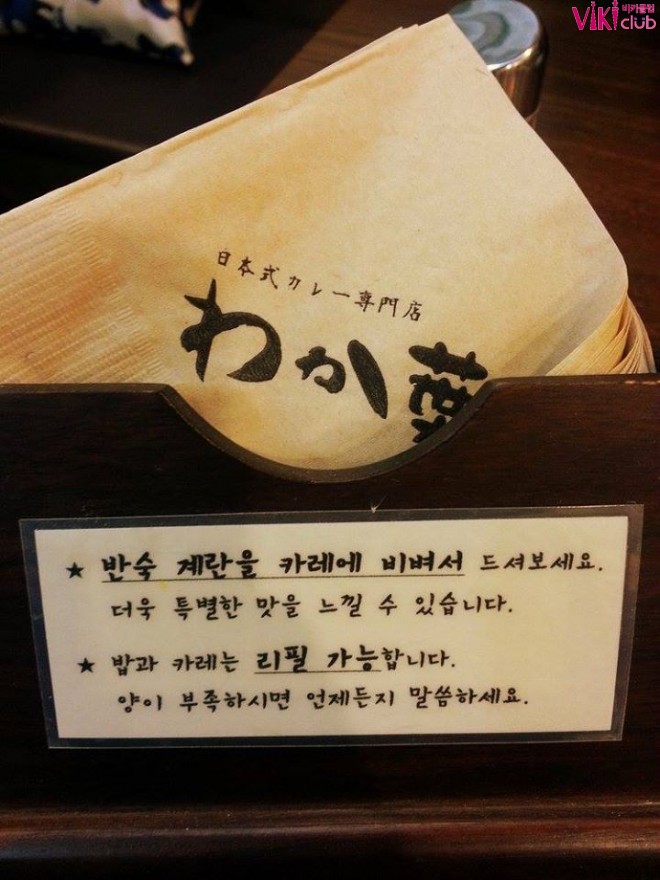 ViKi 비키클럽
club
日本式カレー専門店
わか葉
★ 반숙 계란을 카레에 비벼서 드셔보세요.
더욱 특별한 맛을 느낄 수 있습니다.
★ 밥과 카레는 리필 가능합니다.
양이 부족하시면 언제든지 말씀하세요.